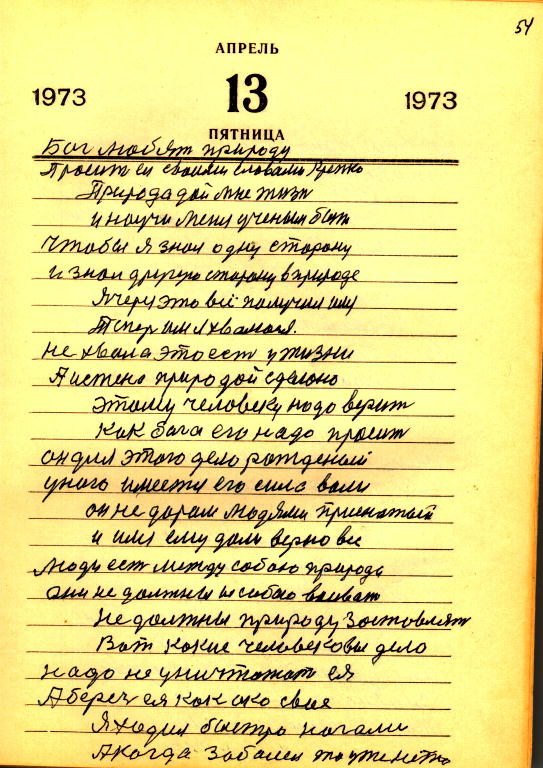 54
АПРЕЛЬ
1973 13 1973
ПЯТНИЦА
Бог любят природу
Просит ея своими словами
Природа дай мне жизн
и научи меня ученым быт
Чтобы я знал одну сторону
и знал другую сторону в природе
Я через это всё получил имя
Тепер им я хвалюся.
не хвала это ест у жизни
А истено природой сделоно
Этому человеку надо верит
как бога его надо просит
он для этого дело рожденый
у ного имеется его сила воли
он не даром людями признатый
и имя ему дали верно все
люди ест между собою природа
они не должны и собою воеват
не должны природу заставлят
Вот какие человековы дело
надо не уничтожат ея
А береч ея как око свае
Я ходил быстро ногами
А когда забалел то уже нетко